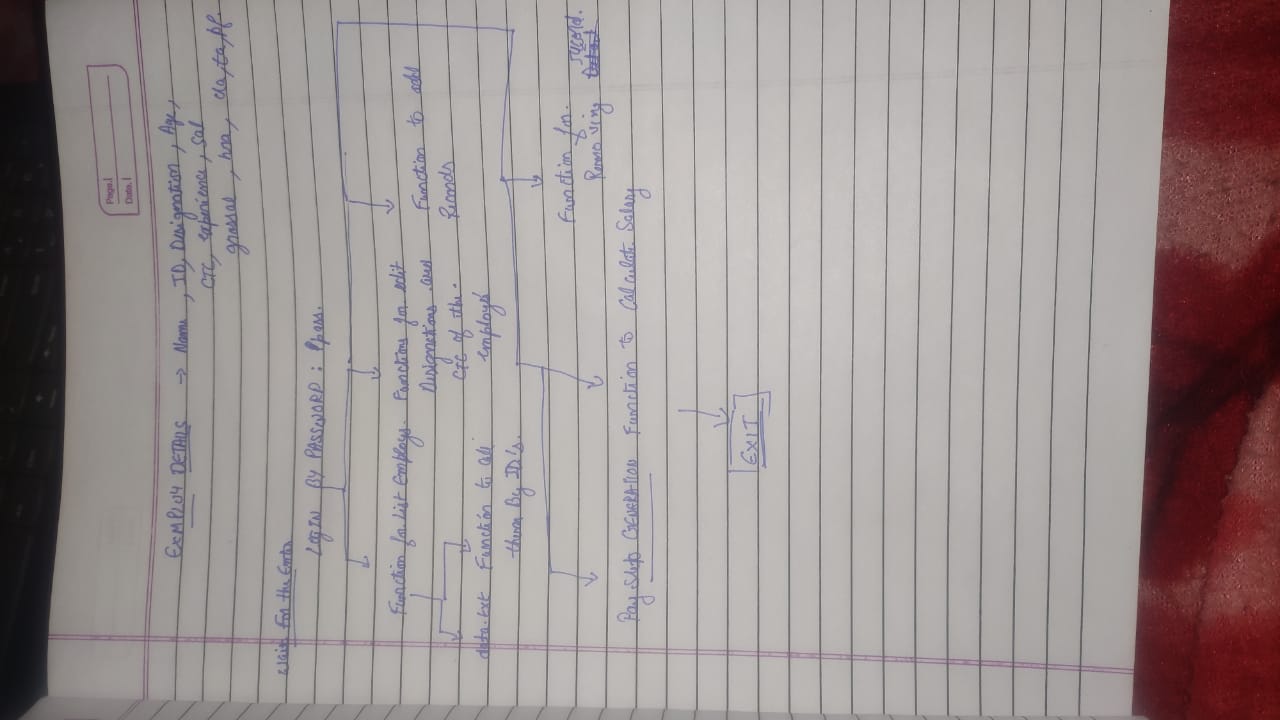 Page.
Date.
EXMPLOY DETAILS → Name, ID, Designation, Age,
CTC, experience, sal
grossal, hra, da, ta, pf.
Wait For the Enter
LOGIN BY PASSWORD : Ppass.
Function for List Employs. Functions for edit Function to add
Designations and Records
CTC of the.
employed
data.txt Function to all
them By ID's.
Function for
Removing record.
Pay Slip GENERATION Function to Calculate Salary
EXIT